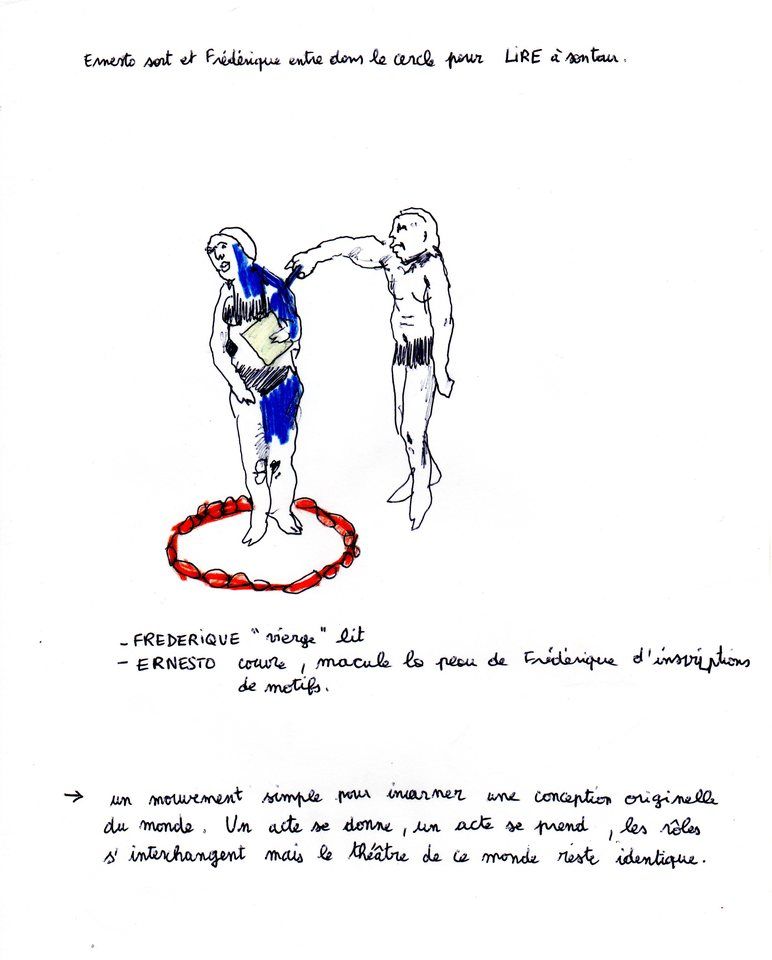 Ernesto sort et Frédérique entre dans le cercle pour LIRE à son tour.
- FREDERIQUE "vierge" lit
- ERNESTO couvre, macule la peau de Frédérique d'inscriptions
de motifs.
→ un mouvement simple pour incarner une conception originelle
du monde. Un acte se donne, un acte se prend, les rôles
s'interchangent mais le théâtre de ce monde reste identique.